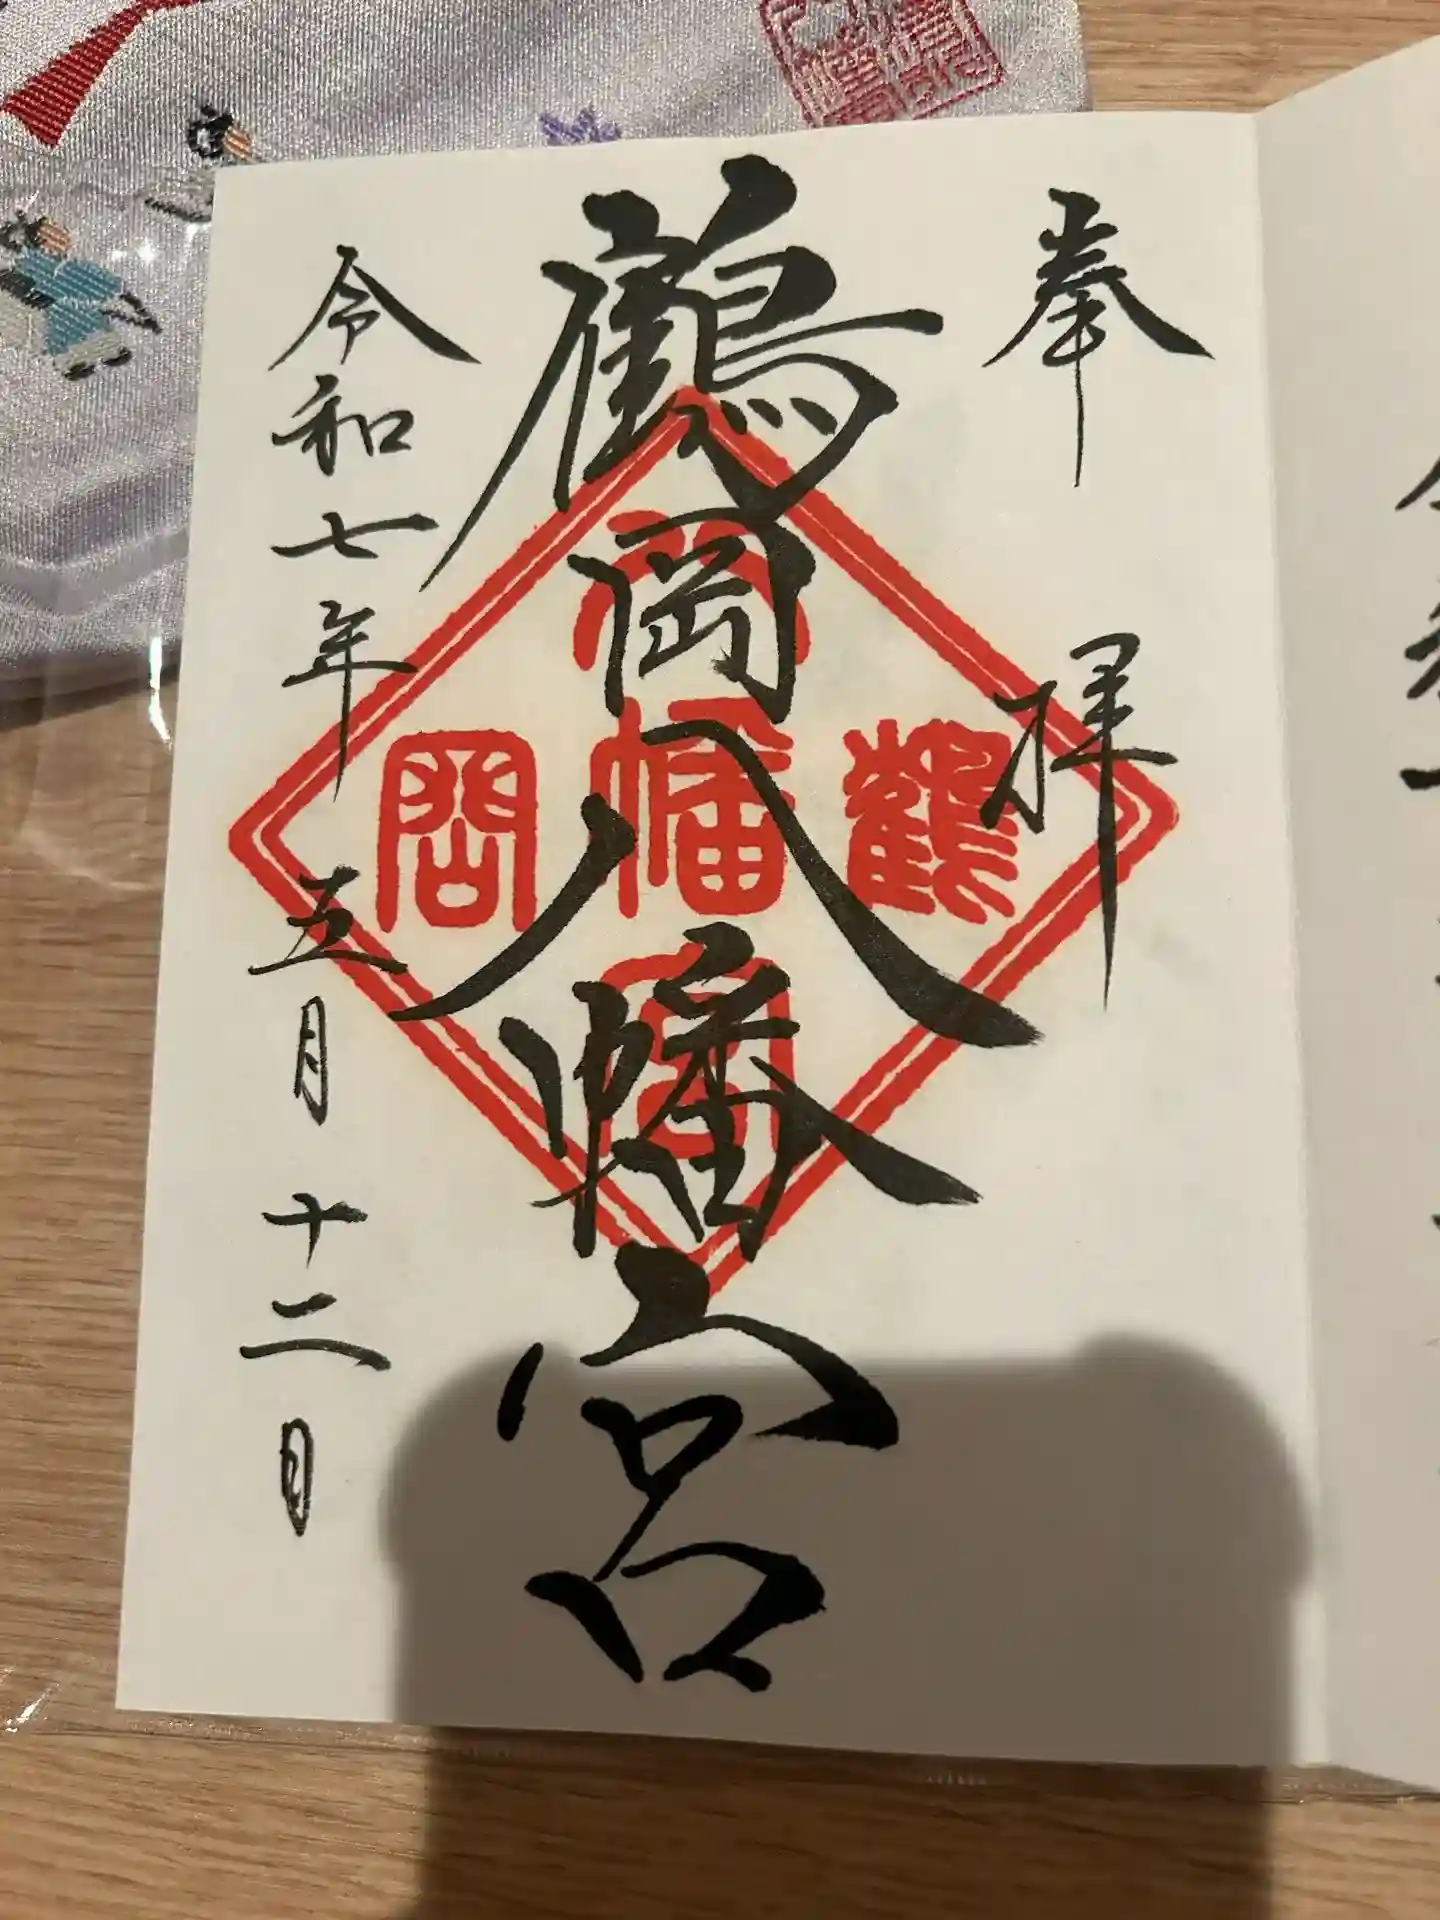 奉拝
鶴岡八幡宮
令和七年五月十二日
鶴
八幡宮
岡